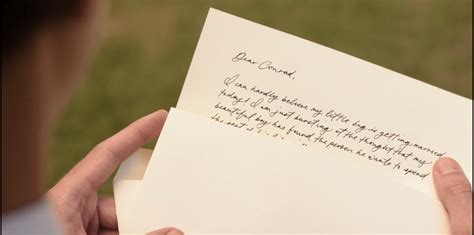 Dear Conrad,
I can hardly believe my little boy is getting married
today! I am just bursting at the thought that my
beautiful boy has found the person he wants to spend
the rest